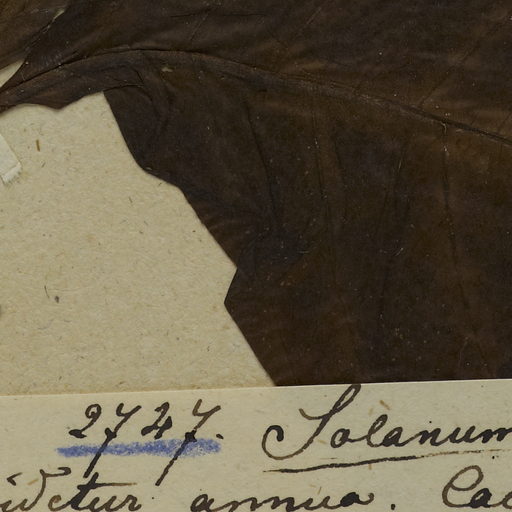 2747. Solanum
idetur annua. Cau